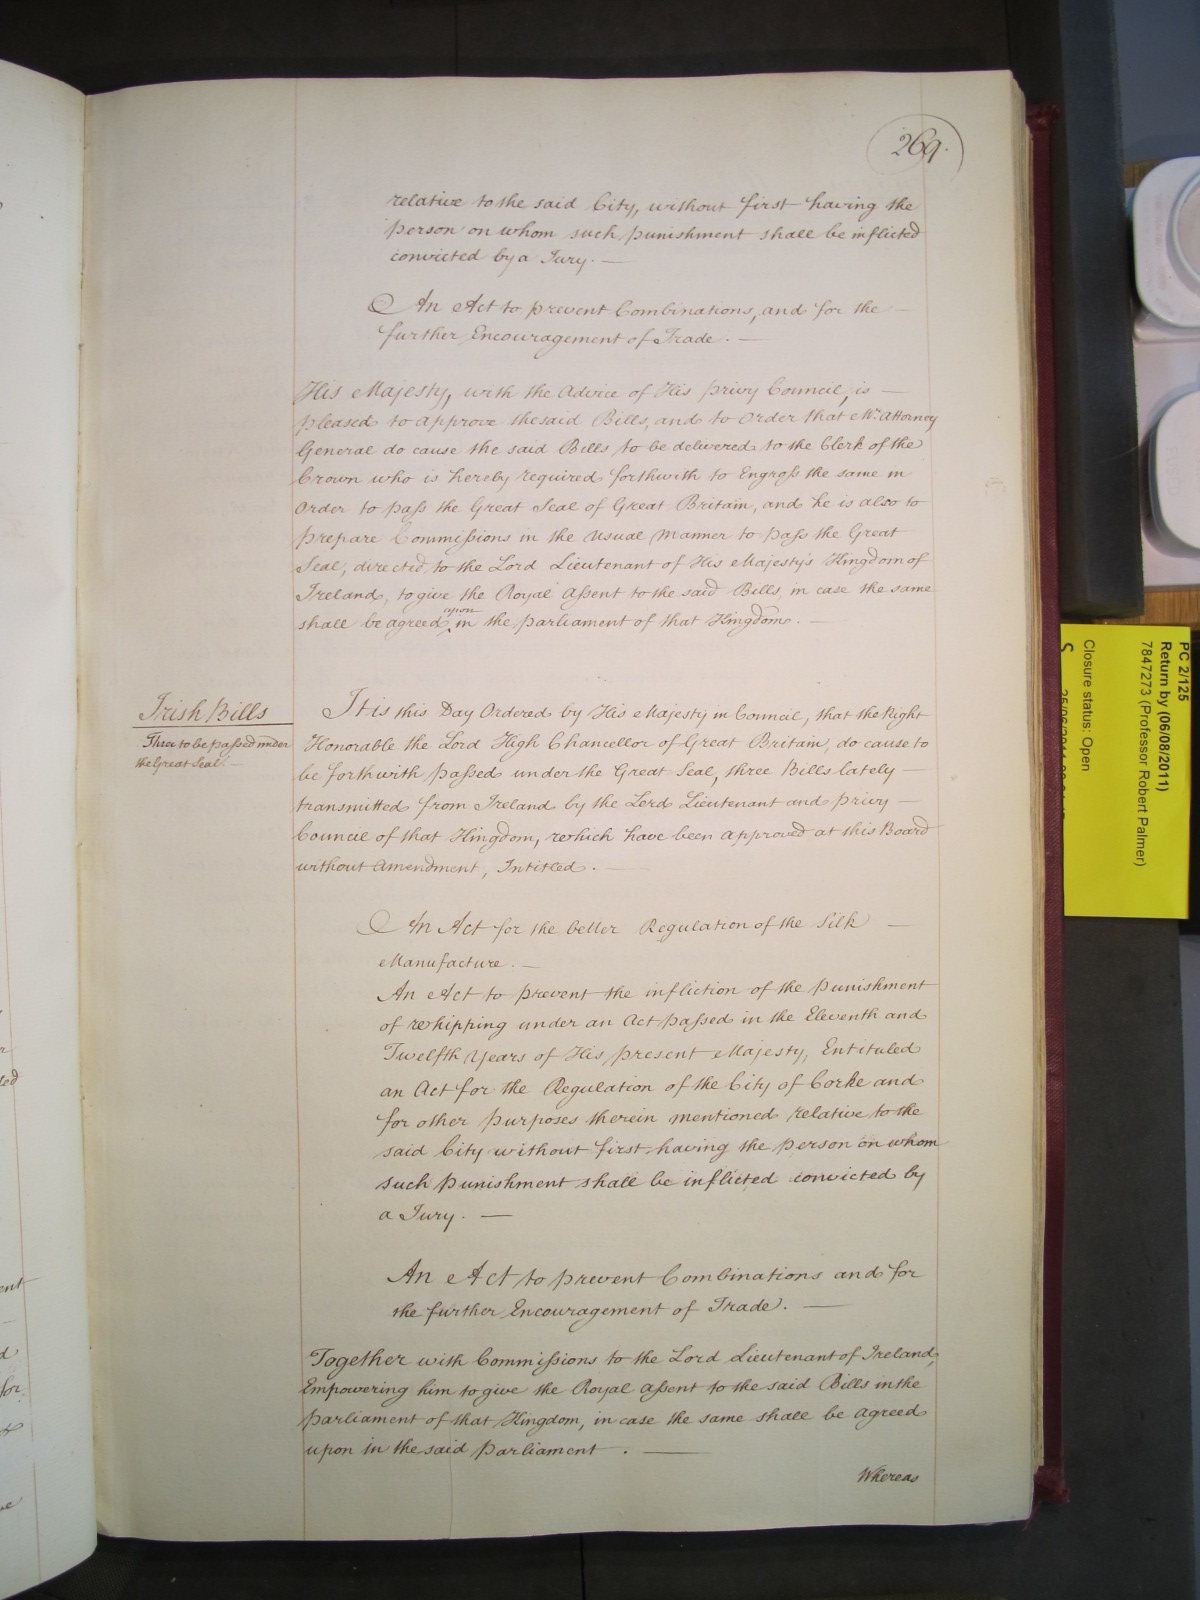 269.
relative to the said City, without first having the
person on whom such punishment shall be inflicted
convicted by a Jury. —
An Act to prevent Combinations, and for the —
further Encouragement of Trade. —
His Majesty, with the Advice of His privy Council, is —
pleased to approve the said Bills, and to Order that Mr. Attorney
General do cause the said Bills to be delivered to the Clerk of the
Crown who is hereby required forthwith to Engroſs the same in
Order to paſs the Great Seal of Great Britain, and he is also to
prepare Commiſsions in the usual Manner to paſs the Great
Seal, directed to the Lord Lieutenant of His Majesty's Kingdom of
Ireland, to give the Royal Aſsent to the said Bills, in case the same
shall be agreed upon in the parliament of that Kingdom. —
Irish Bills
Three to be paſsed under
the Great Seal. —
It is this Day Ordered by His Majesty in Council, that the Right
Honorable the Lord High Chancellor of Great Britain, do cause to
be forthwith paſsed under the Great Seal, three Bills lately —
transmitted from Ireland by the Lord Lieutenant and privy —
Council of that Kingdom, which have been approved at this Board
without Amendment, Intitled. —
An Act for the better Regulation of the Silk —
Manufacture. —
An Act to prevent the infliction of the punishment
of whipping under an Act paſsed in the Eleventh and
Twelfth Years of His present Majesty, Entituled
an Act for the Regulation of the City of Corke and
for other purposes therein mentioned relative to the
said City without first having the person on whom
such punishment shall be inflicted convicted by
a Jury. —
An Act to prevent Combinations and for
the further Encouragement of Trade. —
Together with Commiſsions to the Lord Lieutenant of Ireland,
Empowering him to give the Royal Aſsent to the said Bills in the
parliament of that Kingdom, in case the same shall be agreed
upon in the said parliament. —
Whereas
PC 2/125
Return by (06/08/2011)
7847273 (Professor Robert Palmer)
Closure status: Open